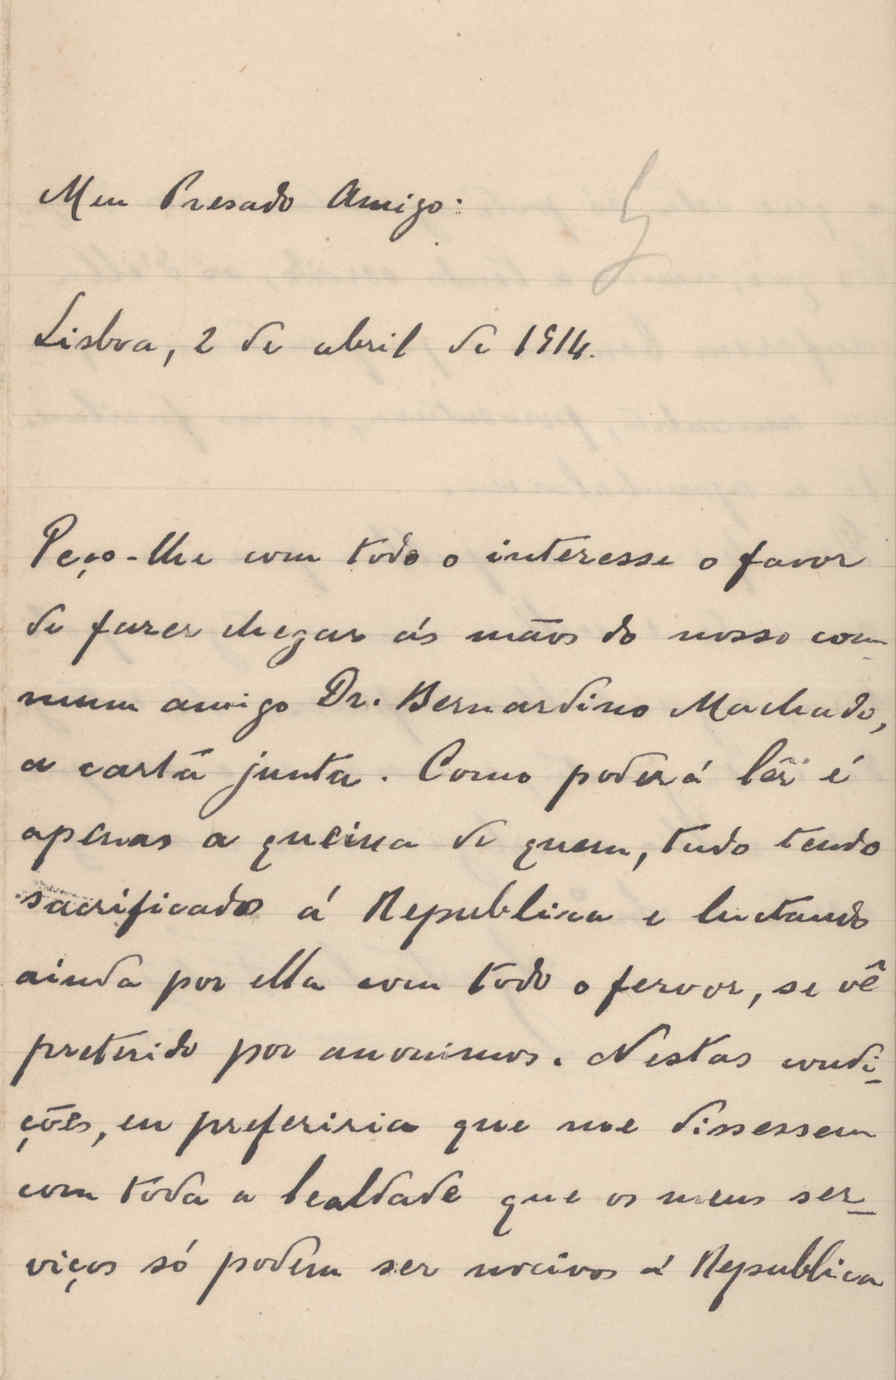 Meu Presado Amigo:
Lisboa, 2 de abril de 1914.
Peço-lhe com todo o interesse o favor
de fazer chegar ás mãos do nosso com-
mum amigo Dr. Bernardino Machado,
a carta junta. Como poderá lêr é
apenas a queixa de quem, tudo tendo
sacrificado á Republica e luctando
ainda por ella com todo o fervor, se vê
preterido por anonimos. Nestas condi-
ções, eu preferiria que me dissessem
com tóda a lealdade que os meus ser-
viços só podem ser nocivos á Republica